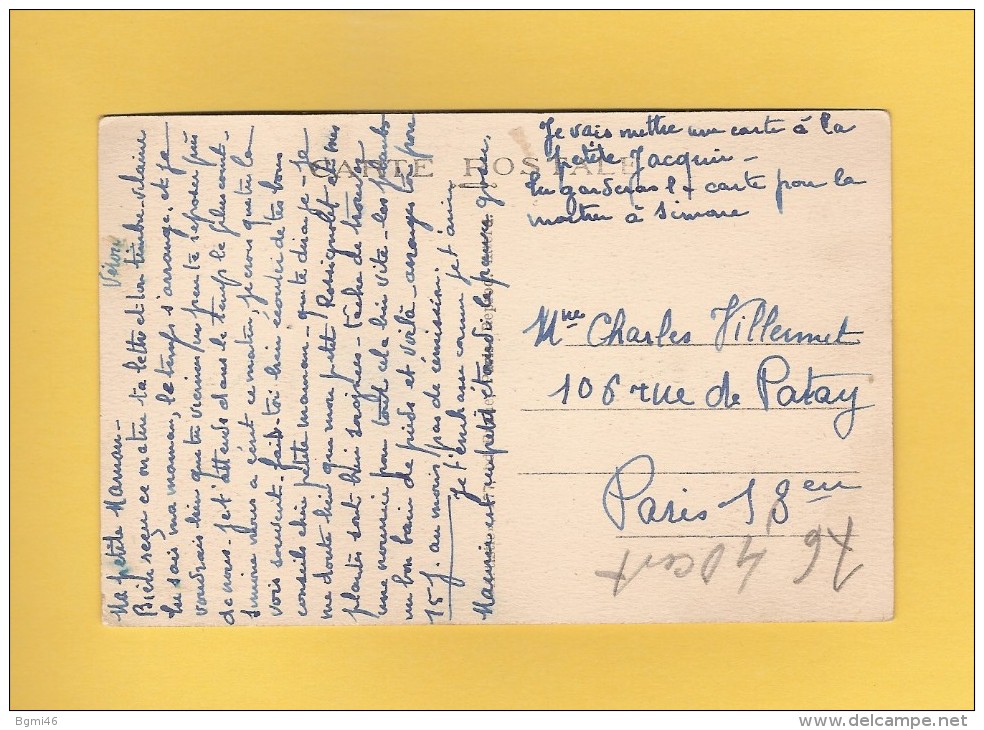 CARTE POSTALE
Ma petite Maman -
Bien reçu ce matin ta lettre et ton timbre.
tu sais ma maman, le temps s'arrange, et je
voudrais bien que tu viennes un peu te reposer près
de nous - je t'attends dans le temps le plus court -
Simone vous a écrit ce matin, je crois que tu la
vois souvent. fais-toi bien écouter de tes bons
conseils chère petite maman - que te dirai-je - je
me doute bien que mon petit Rossignolet et mes
plantes sont bien soignés - tâche de trouver
une nourrice pour tout cela bien vite - les
un bon bain de pieds et voilà - arranges toi pour
15 j. au moins, pas de rémission.
Je t'embrasse comme je t'aime
Maurice est en petit étand le pauvre gosse.
Je vais mettre une carte à la
petite Jacquin -
tu garderas la carte pour la
montrer à Simone
Mme Charles Villermet
106 rue de Patay
Paris 13em
A6
40 cart
Bgmi46
www.delcampe.net